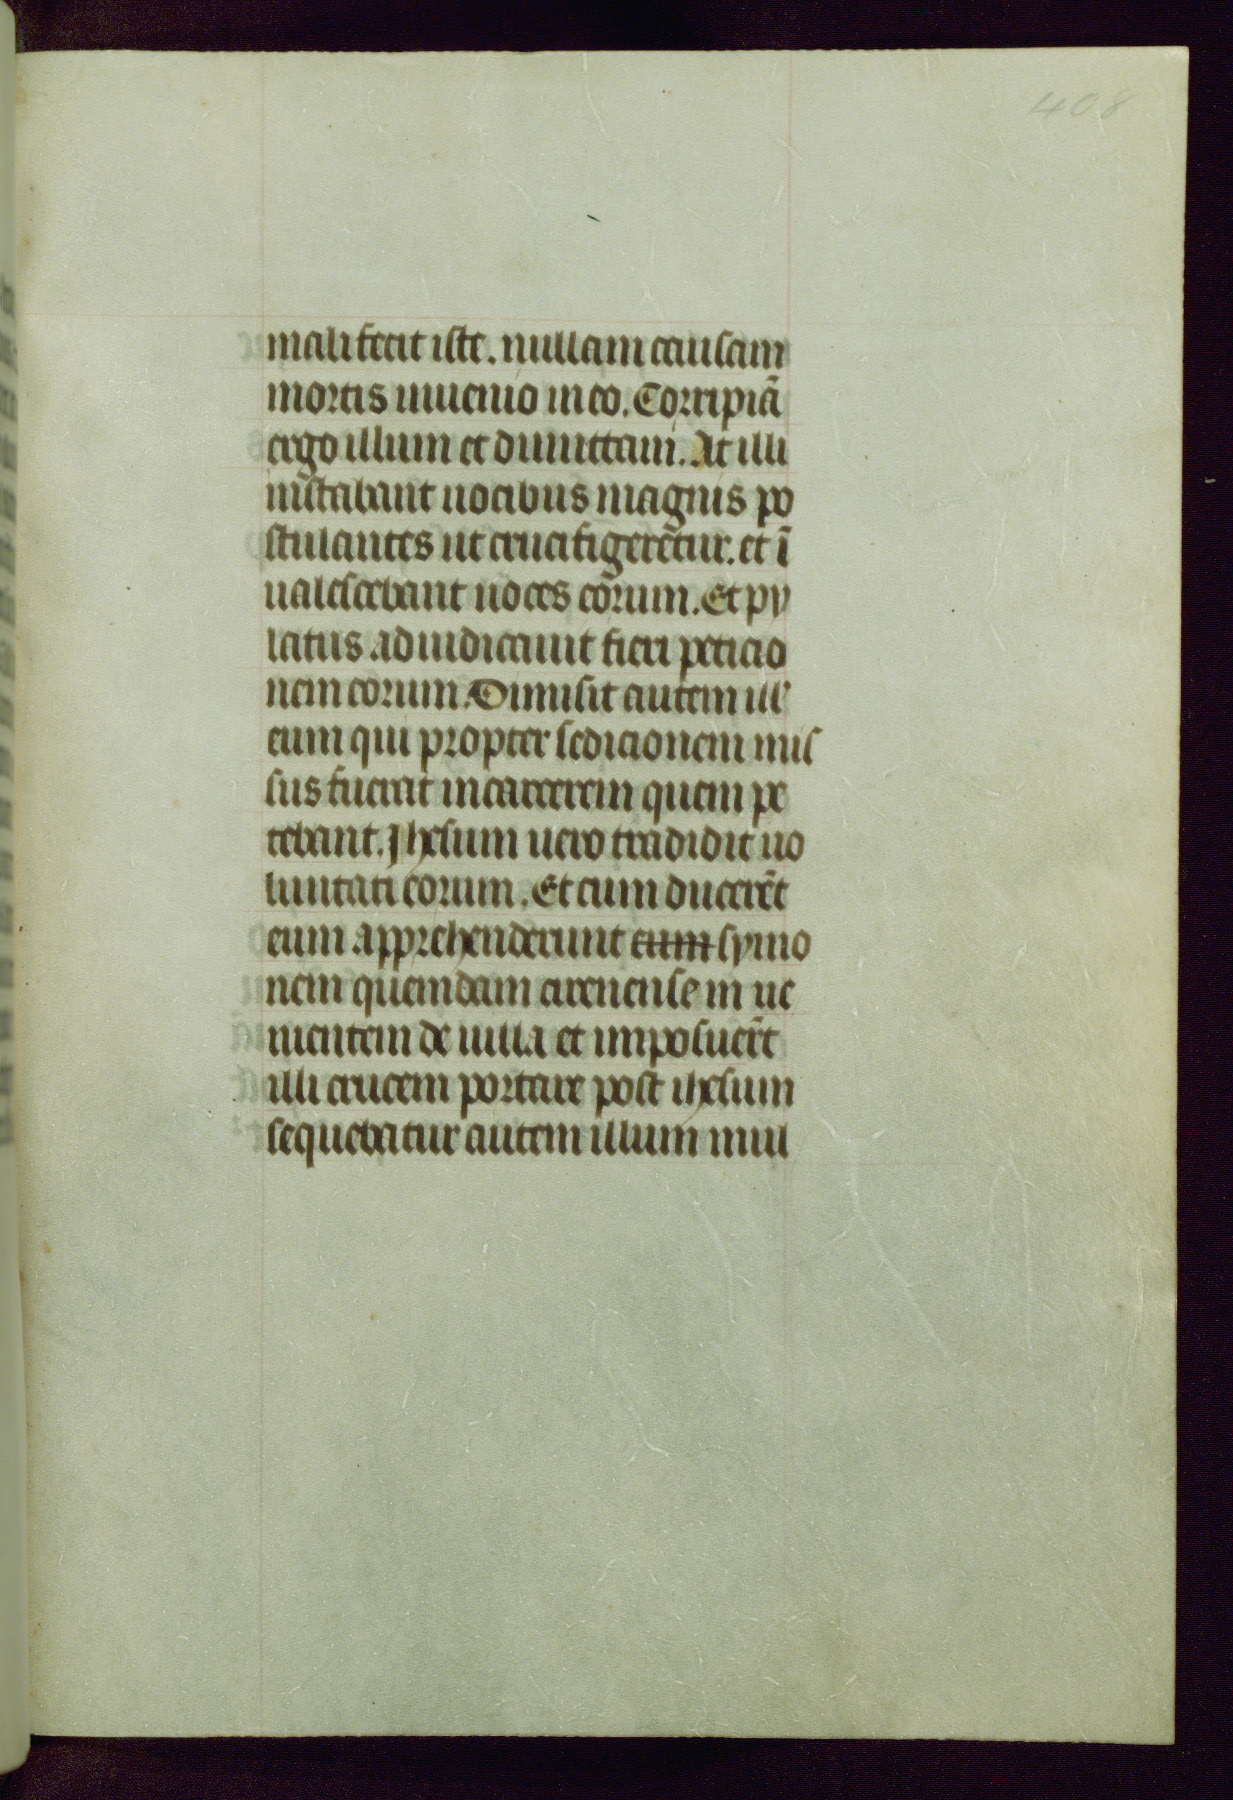 408
mali fecit iste. nullam causam
mortis inuenio in eo. Corripiā
ergo illum et dimittam. At illi
instabant uocibus magnis po
stulantes ut crucifigerētur. et ī
ualescebant uoces eorum. Et py
latus adiudicauit fieri peticio
nem eorum. Dimisit autem ill'
eum qui propter sedicionem mis
sus fuerat in carcerem quem pe
tebant. Jhesum uero tradidit uo
luntati eorum. Et cum ducerēt
eum apprehenderunt eum symo
nem quemdam cirenense m ue
nientem de uilla et imposuer̄t
illi crucem portare post ihesum
sequebatur autem illum mul